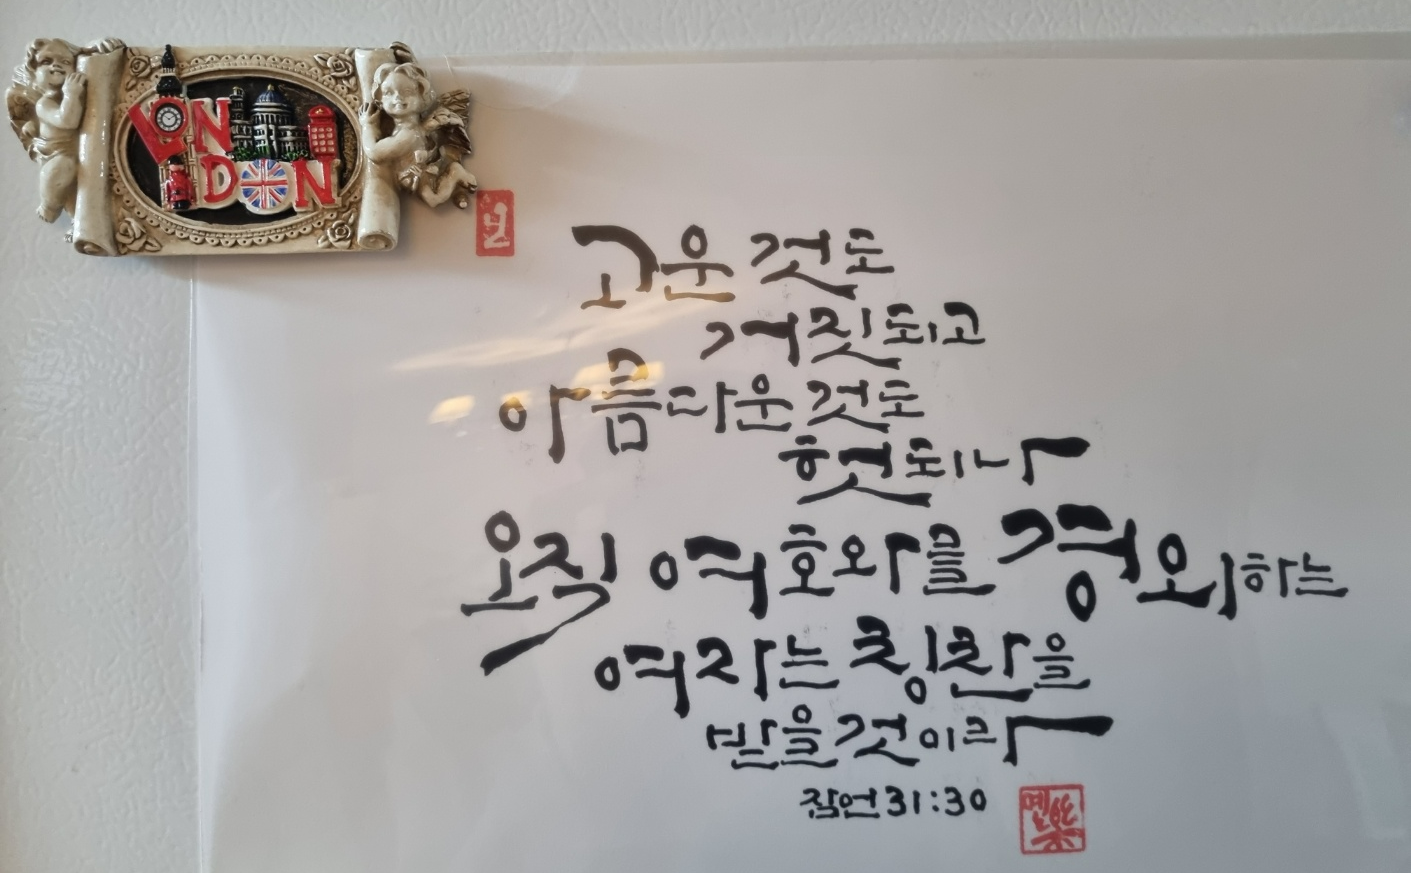 LONDON
고운 것도
거짓되고
아름다운 것도
헛것되나
오직 여호와를 경외하는
여자는 칭찬을
받을것이라
잠언31:30